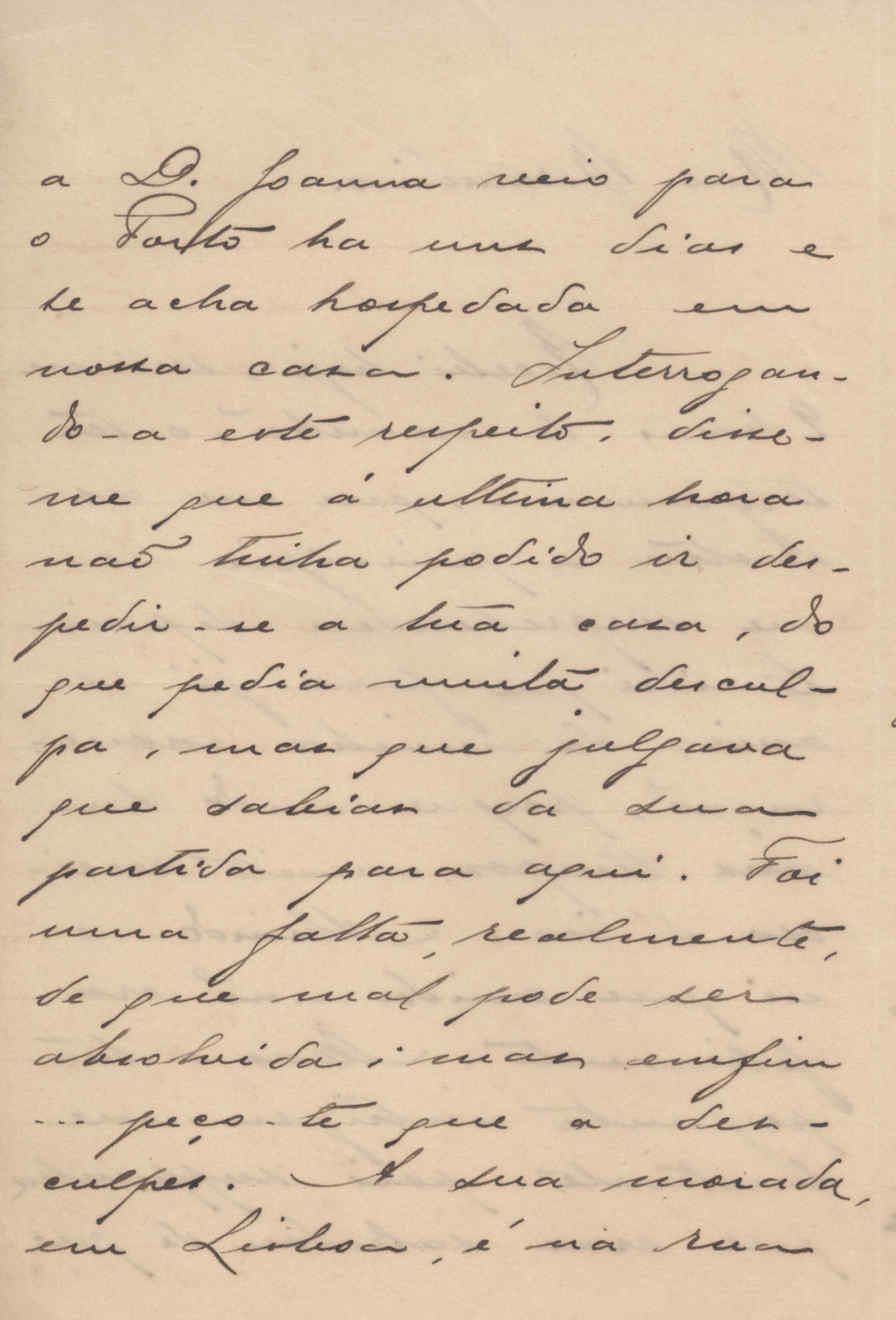 a D. Joanna veio para
o Porto ha uns dias e
se acha hospedada em
nossa casa. Interrogan-
do-a este respeito, disse-
me que á ultima hora
não tinha podido ir des-
pedir-se a tua casa, do
que pedia muita descul-
pa, mas que julgava
que sabias da sua
partida para aqui. Foi
uma falta, realmente,
de que mal pode ser
absolvida; mas emfim
... peço-te que a des-
culpes. A sua morada,
em Lisboa, é na rua